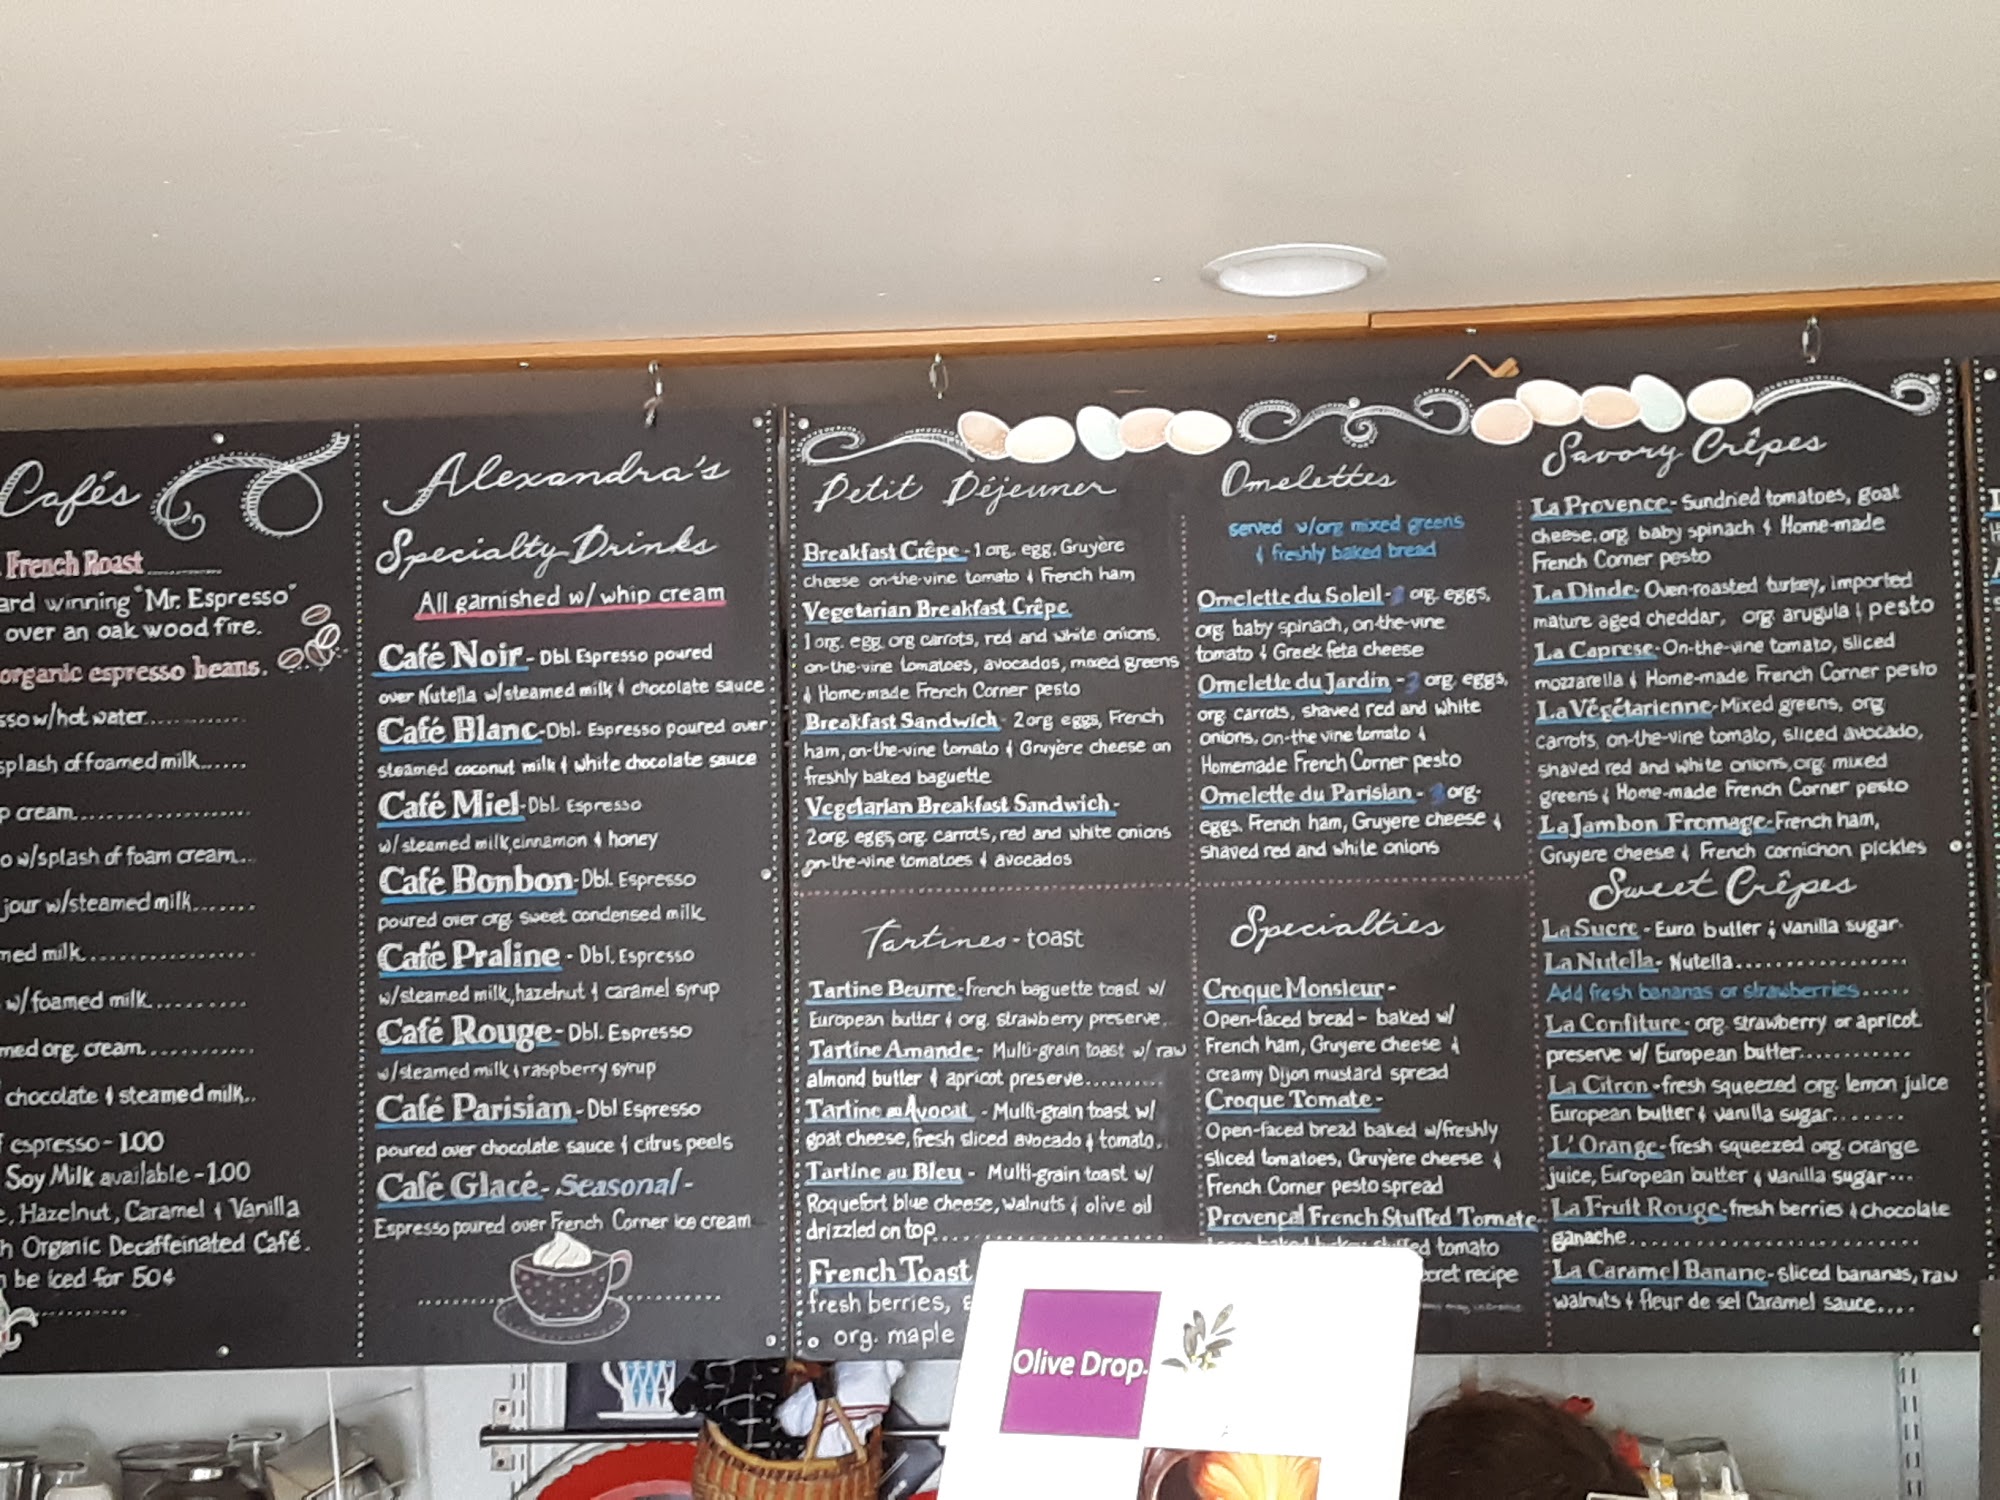 Cafés
French Roast
ard winning "Mr. Espresso"
over an oak wood fire.
organic espresso beans.
sso w/hot water
splash of foamed milk
p cream
o w/splash of foam cream
jour w/steamed milk
med milk
w/foamed milk
med org. cream
chocolate & steamed milk
espresso - 1.00
Soy Milk available - 1.00
, Hazelnut, Caramel & Vanilla
h Organic Decaffeinated Café.
be iced for 50¢
Alexandra's
Specialty Drinks
All garnished w/ whip cream
Café Noir - Dbl. Espresso poured
over Nutella w/steamed milk & chocolate sauce
Café Blanc - Dbl. Espresso poured over
steamed coconut milk & white chocolate sauce
Café Miel - Dbl. Espresso
w/steamed milk, cinnamon & honey
Café Bonbon - Dbl. Espresso
poured over org. sweet condensed milk
Café Praline - Dbl. Espresso
w/steamed milk, hazelnut & caramel syrup
Café Rouge - Dbl. Espresso
w/steamed milk & raspberry syrup
Café Parisian - Dbl Espresso
poured over chocolate sauce & citrus peels
Café Glacé - Seasonal -
Espresso poured over French Corner ice cream
Petit Déjeuner
Breakfast Crêpe - 1 org. egg. Gruyère
cheese on-the-vine tomato & French ham
Vegetarian Breakfast Crêpe
1 org. egg, org carrots, red and white onions,
on-the-vine tomatoes, avocados, mixed greens
& Home-made French Corner pesto
Breakfast Sandwich - 2 org. eggs, French
ham, on-the-vine tomato & Gruyère cheese on
freshly baked baguette
Vegetarian Breakfast Sandwich -
2 org. eggs, org. carrots, red and white onions
on-the-vine tomatoes & avocados
Tartines - toast
Tartine Beurre - French baguette toast w/
European butter & org. strawberry preserve
Tartine Amande - Multi-grain toast w/ raw
almond butter & apricot preserve
Tartine au Avocat - Multi-grain toast w/
goat cheese, fresh sliced avocado & tomato.
Tartine au Bleu - Multi-grain toast w/
Roquefort blue cheese, walnuts & olive oil
drizzled on top
French Toast
fresh berries,
org. maple
Omelettes
served w/org mixed greens
& freshly baked bread
Omelette du Soleil - 3 org. eggs,
org. baby spinach, on-the-vine
tomato & Greek feta cheese
Omelette du Jardin - 3 org. eggs,
org. carrots, shaved red and white
onions, on-the vine tomato &
Homemade French Corner pesto
Omelette du Parisian - 3 org.
eggs, French ham, Gruyere cheese &
shaved red and white onions
Specialties
Croque Monsieur -
Open-faced bread - baked w/
French ham, Gruyere cheese &
creamy Dijon mustard spread
Croque Tomate -
Open-faced bread baked w/freshly
sliced tomatoes, Gruyère cheese &
French Corner pesto spread
Provençal French Stuffed Tomate
tomato
recipe
Savory Crêpes
La Provence - Sundried tomatoes, goat
cheese, org. baby spinach & Home-made
French Corner pesto
La Dinde - Oven-roasted turkey, imported
mature aged cheddar, org. arugula & pesto
La Caprese - On-the-vine tomato, sliced
mozzarella & Home-made French Corner pesto
La Végétarienne - Mixed greens, org
carrots, on-the-vine tomato, sliced avocado,
shaved red and white onions, org. mixed
greens & Home-made French Corner pesto
La Jambon Fromage - French ham,
Gruyere cheese & French cornichon pickles
Sweet Crêpes
La Sucre - Euro butter & vanilla sugar
La Nutella - Nutella
Add fresh bananas or strawberries
La Confiture - org. strawberry or apricot
preserve w/ European butter
La Citron - fresh squeezed org. lemon juice
European butter & vanilla sugar
L'Orange - fresh squeezed org. orange
juice, European butter & vanilla sugar
La Fruit Rouge - fresh berries & chocolate
ganache
La Caramel Banane - sliced bananas, raw
walnuts & fleur de sel Caramel sauce
Olive Drop.